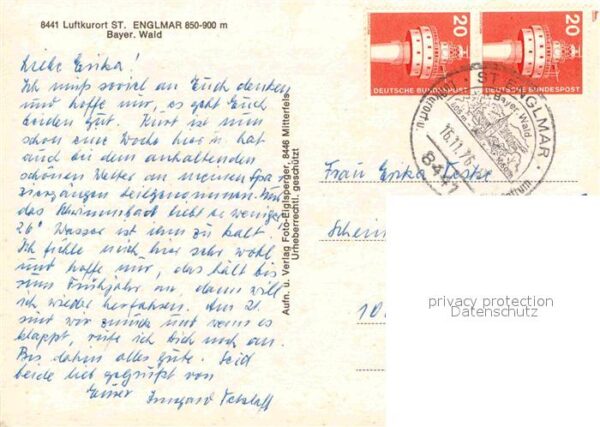 8441 Luftkurort ST. ENGLMAR 850-900 m
Bayer. Wald
Liebe Erika!
Ich muß soviel an Euch denken
und hoffe nur, es geht Euch
beiden gut. Kurt ist nun
schon eine Woche hier u. hat
auch bei dem anhaltenden
schönen Wetter an meinen Spa
ziergängen teilgenommen. Nur
das Schwimmbad liebt er weniger
26° Wasser ist ihm zu kalt.
Ich fühle mich hier sehr wohl
und hoffe nur, das hält bis
zum Frühjahr an, dann will
ich wieder herfahren. Am 21.
sind wir zurück und wenn es
klappt, rufe ich dich mal an.
Bis dahin alles gute. Seid
beide lieb gegrüßt von
Eurer Irmgard
Aufn. u. Verlag Foto-Elglsperger, 8446 Mitterfels
Urheberrechtl. geschützt
20
DEUTSCHE BUNDESPOST
20
DEUTSCHE BUNDESPOST
ST. ENGLMAR
Bayer. Wald
16.11.76
8441
Frau Erika Teske
10
privacy protection
Datenschutz